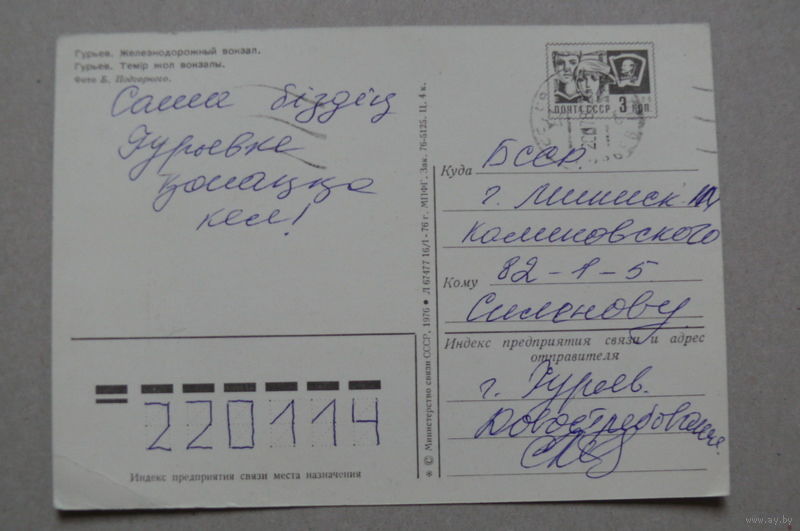 Гурьев. Железнодорожный вокзал.
Гурьев. Темір жол вокзалы.
Фото Б. Подгорного.
Саша біздің
Гурьевке
қонаққа
кел!
* © Министерство связи СССР, 1976 ● Л 67477 16/I-76 г. МПФГ. Зак. 76-5125. Ц. 4 к.
ПОЧТА СССР 3 КОП
Куда БССР.
г. Минск
Калиновского
82-1-5
Кому
Силенову
Индекс предприятия связи и адрес
отправителя
г. Гурьев.
Довостребования
220114
Индекс предприятия связи места назначения
www.ay.by